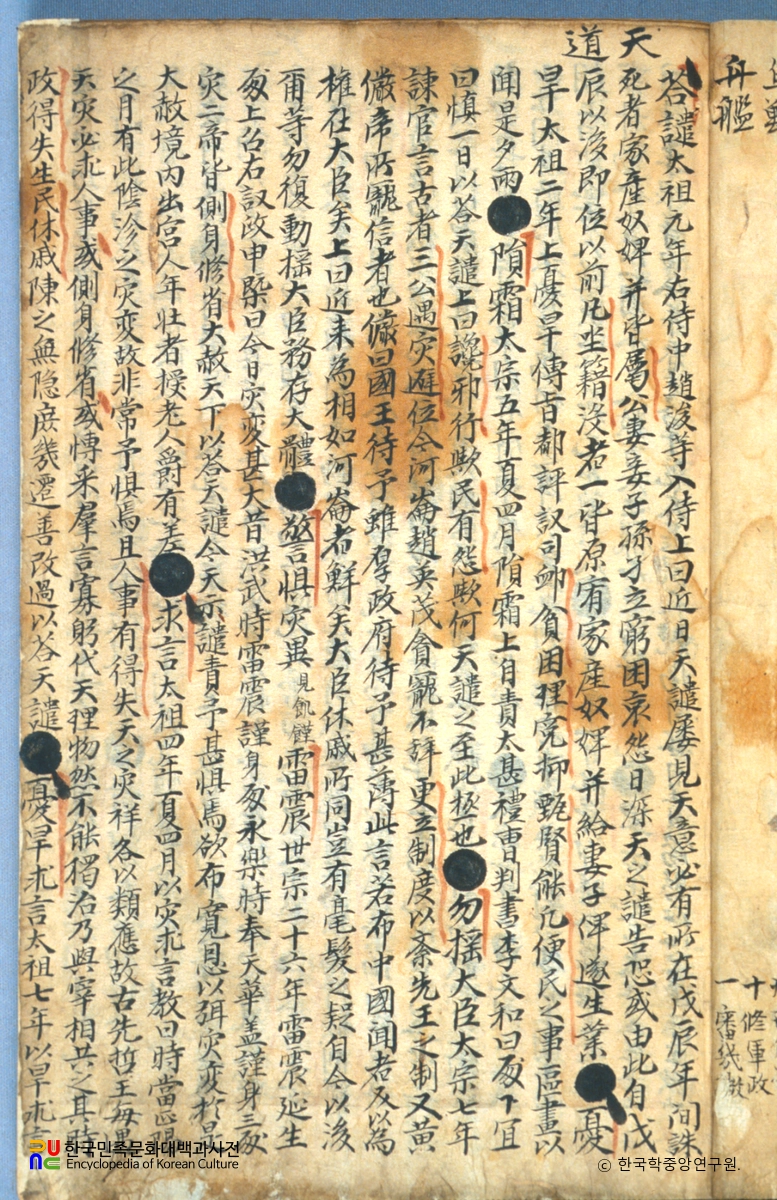 天道
答譴太祖元年右侍中趙浚等入侍上曰近日天譴屡見天意必有所在戊辰年間誅
死者家産奴婢并皆属公妻妾子孫孑立窮困哀怨日深天之譴告恐或由此自戊
辰以後即位以前凡坐籍没者一皆原宥家産奴婢并給妻子俾遂生業 憂
旱太祖二年上憂旱傳旨都評議司衅貧困理寃抑甄賢能凡便民之事區畫以
聞是夕雨 隕霜太宗五年夏四月隕霜上自責太甚禮曹判書李文和曰殿下宜
曰慎一日以答天譴上曰讒邪行歟民有怨歟何天譴之至此極也 勿揺大臣太宗七年
諫官言古者三公遇灾避位今河崙趙英茂貪寵不辞更立制度以紊先王之制又黄
儼帝所寵信者也儼曰國王待予雖厚政府待予甚薄此言若布中國聞者反以為
權在大臣矣上曰近来為相如河崙者鮮矣大臣休戚所同豈有毫髮之疑自今以後
爾等勿復動揺大臣務存大體 敬言惧灾異 見飢饉 雷震世宗二十六年雷震延生
殿上召右議政申槩曰今日灾変甚大昔洪武時雷震謹身殿永樂時奉天華盖謹身三殿
灾二帝皆側身修省大赦天下以答天譴今天示譴責予甚惧焉欲布寛恩以弭灾変於是
大赦境内出宮人年壮者授老人爵有差 求言太祖四年夏四月以灾求言教曰時當正陽
之月有此陰沴之灾変故非常予惧焉且人事有得失天之灾祥各以類應故古先哲王每遇
天灾必求人事或側身修省或慱采羣言寡躬代天理物然不能獨治乃與宰相共之其時
政得失生民休戚陳之無隐庶幾遷善改過以答天譴 憂旱求言太祖七年以旱求言
舟艦
十修軍政
一審幾
한국민족문화대백과사전
Encyclopedia of Korean Culture
© 한국학중앙연구원.